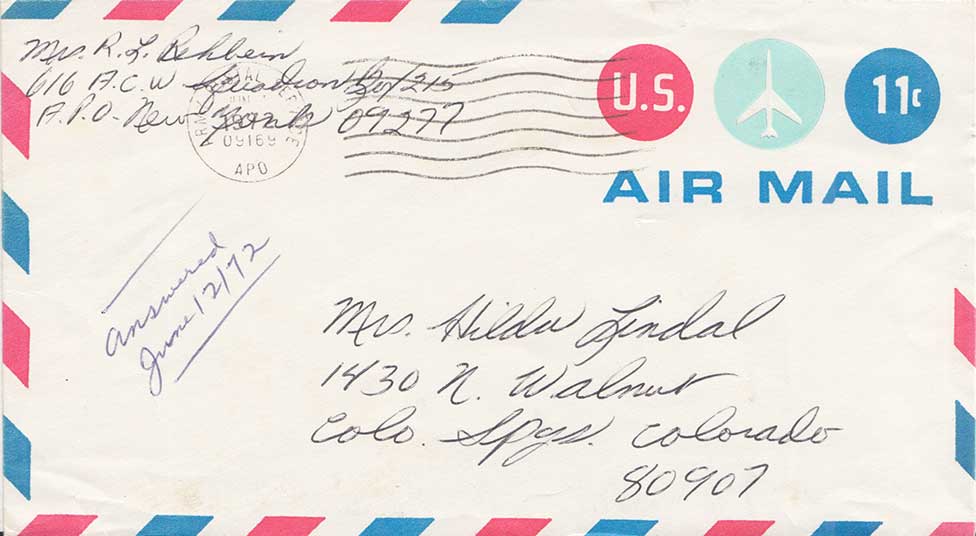 Mrs. R. L. Rehbein
616 A.C.W Squadron Box 215
A.P.O. New York 09277
09169
APO
U.S.
11c
AIR MAIL
answered
June 12/72
Mrs. Hilda Lindal
1430 N. Walnut
Colo. Spgs. Colorado
80907